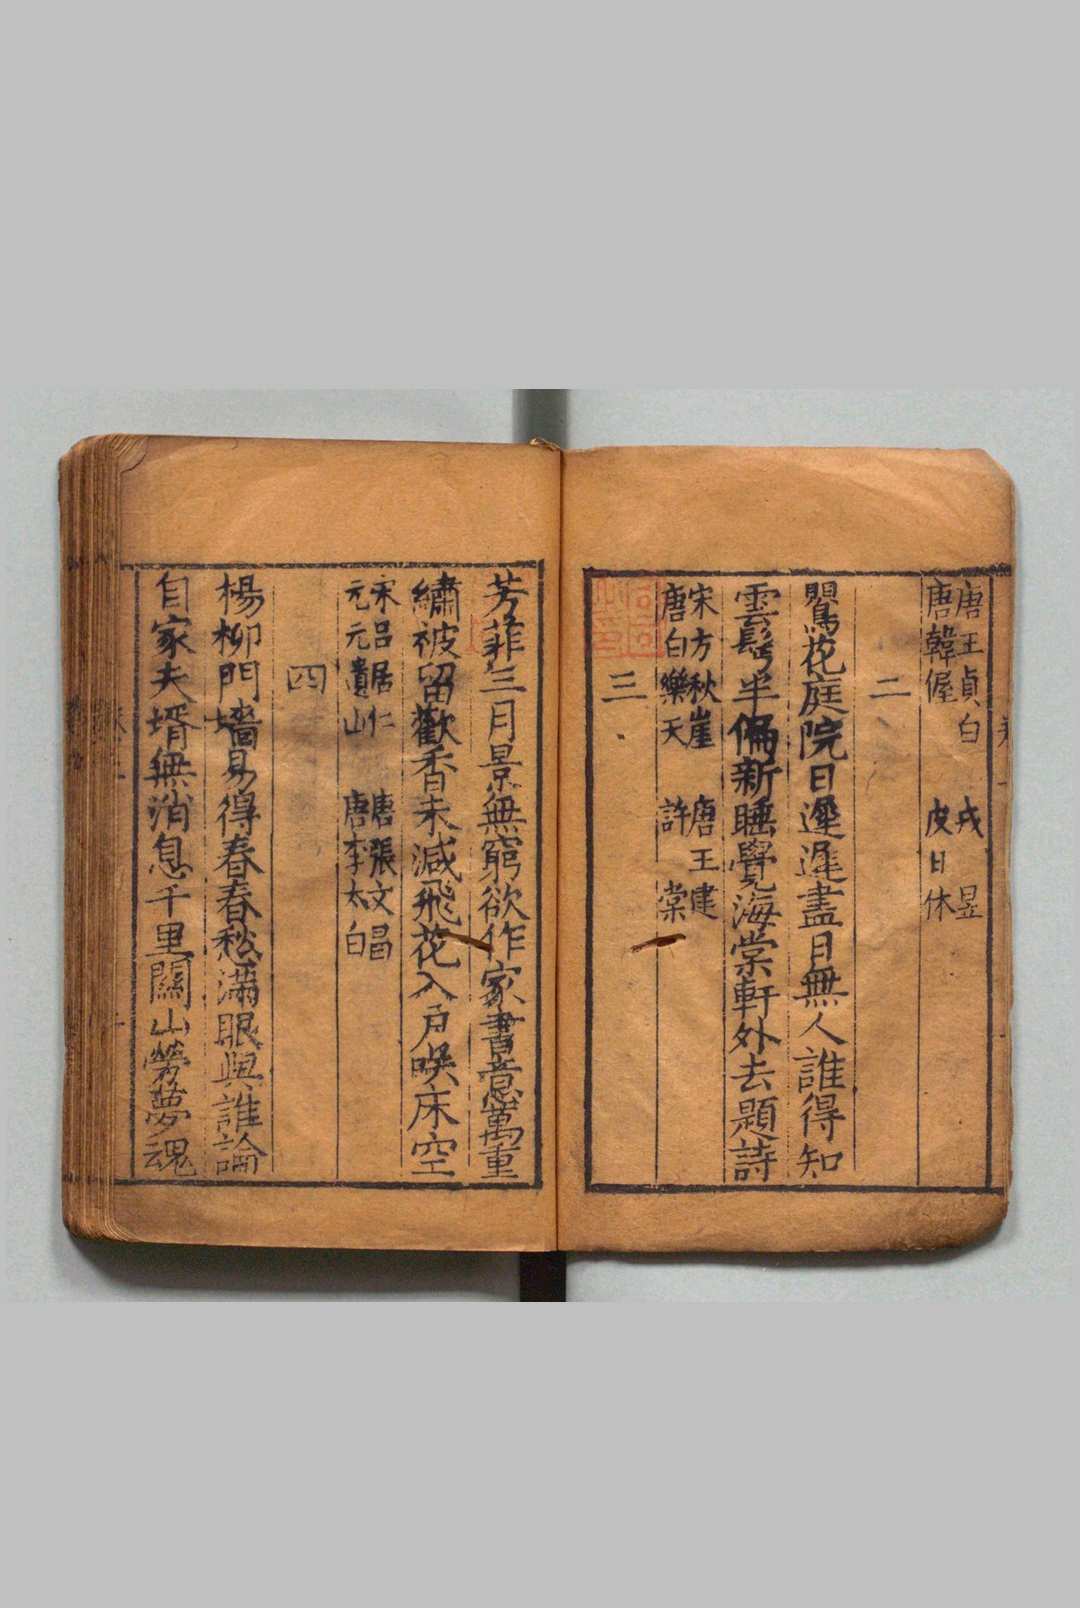 唐王貞白　戎昱
唐韓偓　皮日休
二
鸎花庭院日遲遲盡日無人誰得知
雲鬂半偏新睡覺海棠軒外去題詩
宋方秋崖　唐王建
唐白樂天　許棠
三
芳菲三月景無窮欲作家書意萬重
繡被留歡香未減飛花入戶暎床空
宋呂居仁　唐張文昌
元元遺山　唐李太白
四
楊柳門墻易得春春愁滿眼與誰論
自家夫壻無消息千里關山勞夢魂